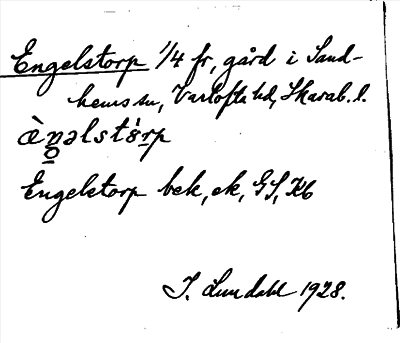 Engelstorp 1/4 fr, gård i Sand-
hems sn, Vartofta hd, Skarab. l.
Engelstorp bek, ek, GS, Kb
J. Lundahl 1928.